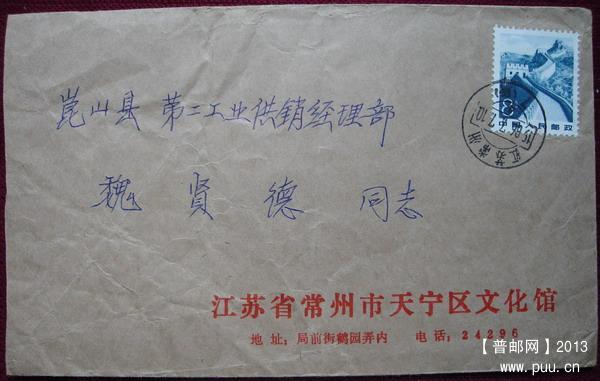 崑山县 第二工业供销经理部
魏贤德 同志
8
中国人民邮政
江苏常州
江苏省常州市天宁区文化馆
地址：局前街鹤园弄内 电话：24296
【普邮网】2013
www.puu.cn